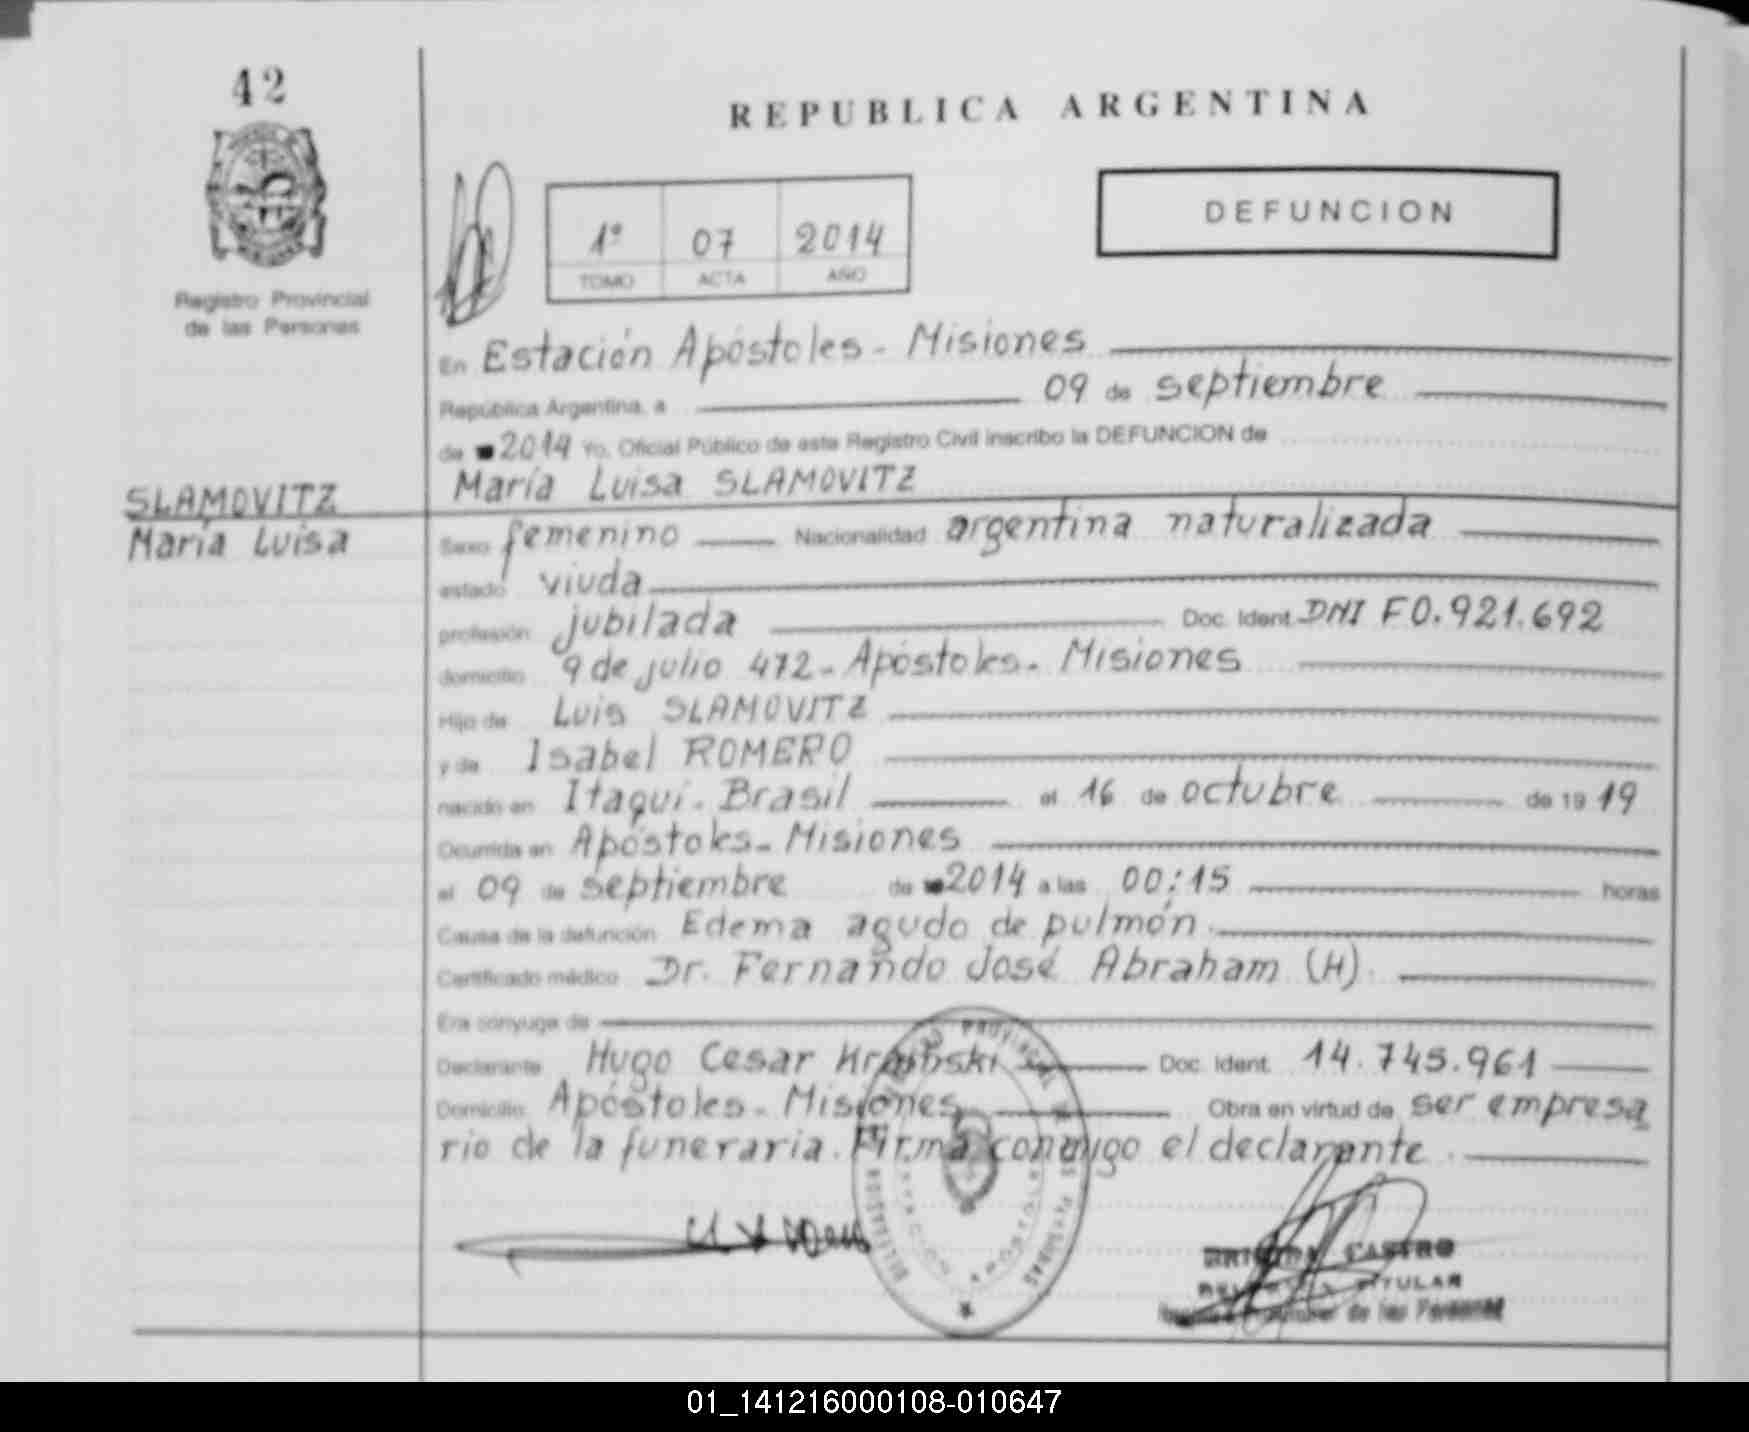 42
REPUBLICA ARGENTINA
DEFUNCION
1º 07 2014
TOMO ACTA AÑO
Registro Provincial
de las Personas
En Estación Apóstoles - Misiones
República Argentina, a 09 de septiembre
de 2014 Yo, Oficial Público de este Registro Civil inscribo la DEFUNCION de
María Luisa SLAMOVITZ
SLAMOVITZ
María Luisa
Sexo femenino Nacionalidad argentina naturalizada
estado viuda
profesión jubilada Doc. Ident. DNI F0.921.692
domicilio 9 de julio 472 - Apóstoles - Misiones
Hijo de Luis SLAMOVITZ
y de Isabel ROMERO
nacido en Itaqui - Brasil el 16 de octubre de 19 19
Ocurrida en Apóstoles - Misiones
el 09 de septiembre de 2014 a las 00:15 horas
Causa de la defunción Edema agudo de pulmón.
Certificado médico Dr. Fernando José Abraham (H).
Era cónyuge de
Declarante Hugo Cesar Doc. Ident. 14.745.961
Domicilio Apóstoles - Misiones Obra en virtud de ser empresa
rio de la funeraria. Firma conmigo el declarante.
PROVINCIAL DE LAS PERSONAS
CASTRO
TITULAR
de las Personas
01_141216000108-010647